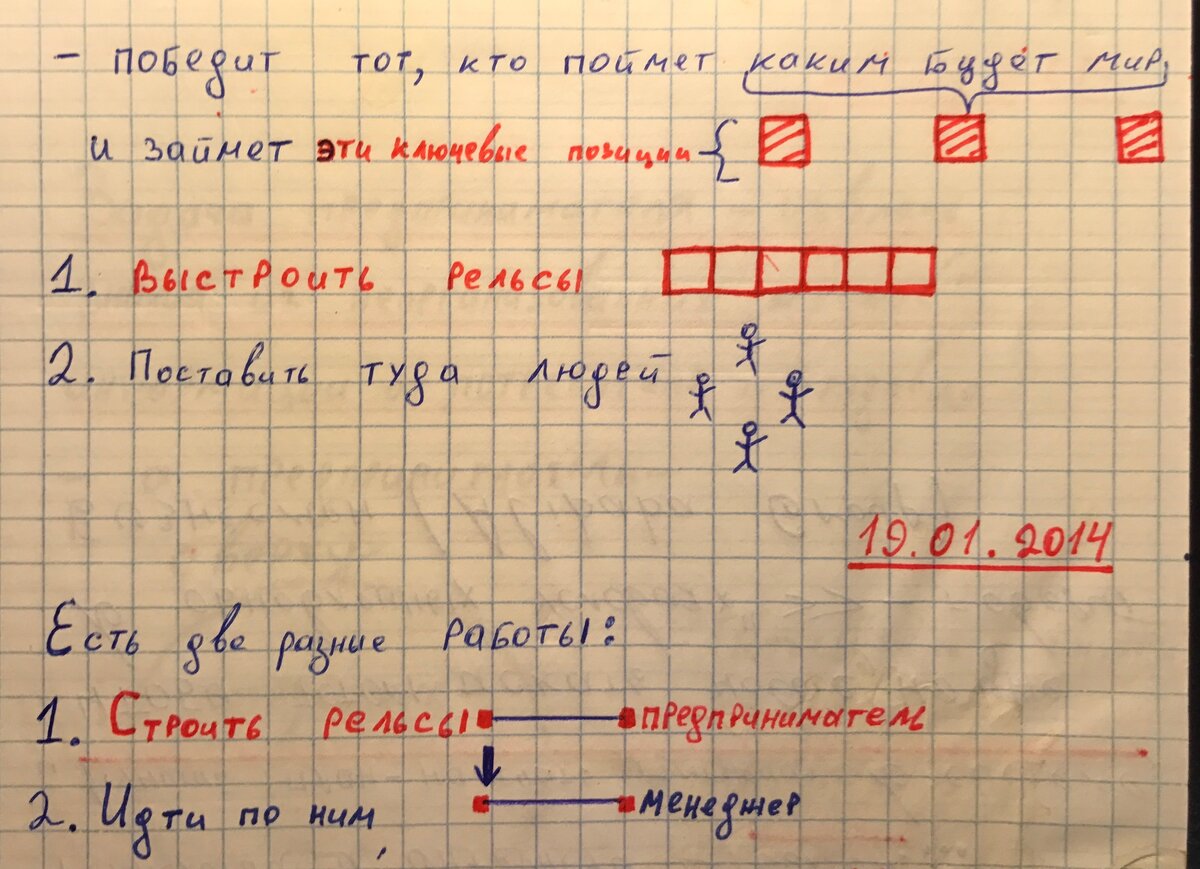 - победит тот, кто поймет каким будет мир,
и займет эти ключевые позиции
1. Выстроить рельсы
2. Поставить туда людей
19.01.2014
Есть две разные работы:
1. Строить рельсы предприниматель
2. Идти по ним менеджер